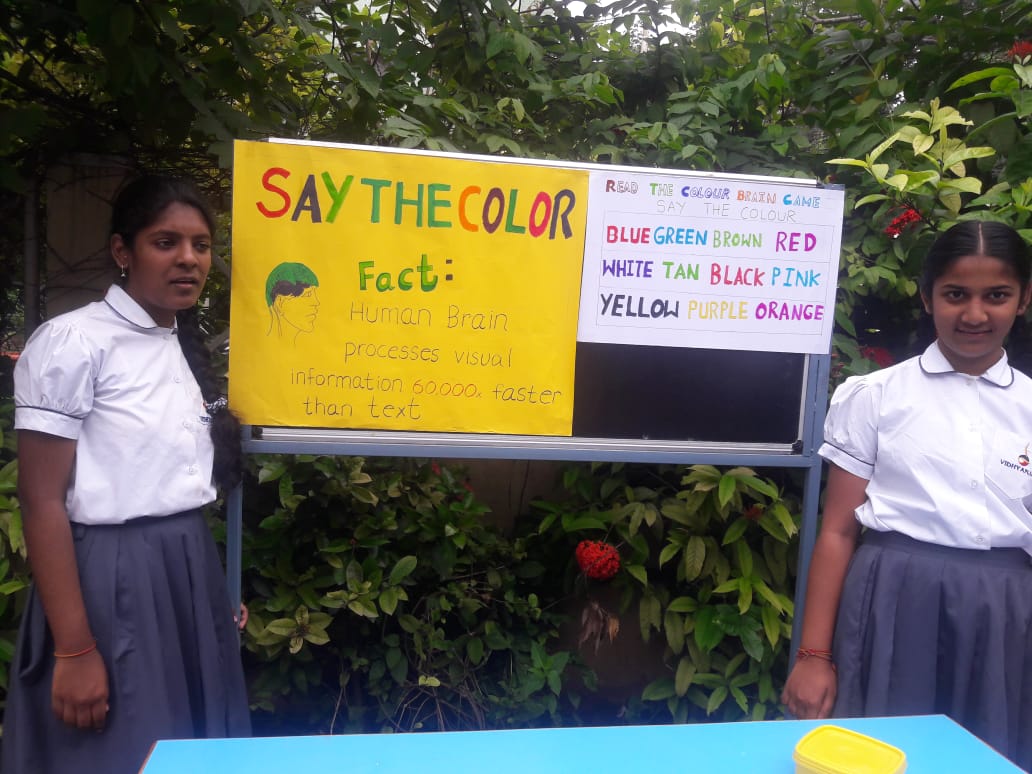 SAY THE COLOR
Fact:
Human Brain
processes visual
information 60,000x faster
than text
READ THE COLOUR BRAIN GAME
SAY THE COLOUR
BLUE GREEN BROWN RED
WHITE TAN BLACK PINK
YELLOW PURPLE ORANGE